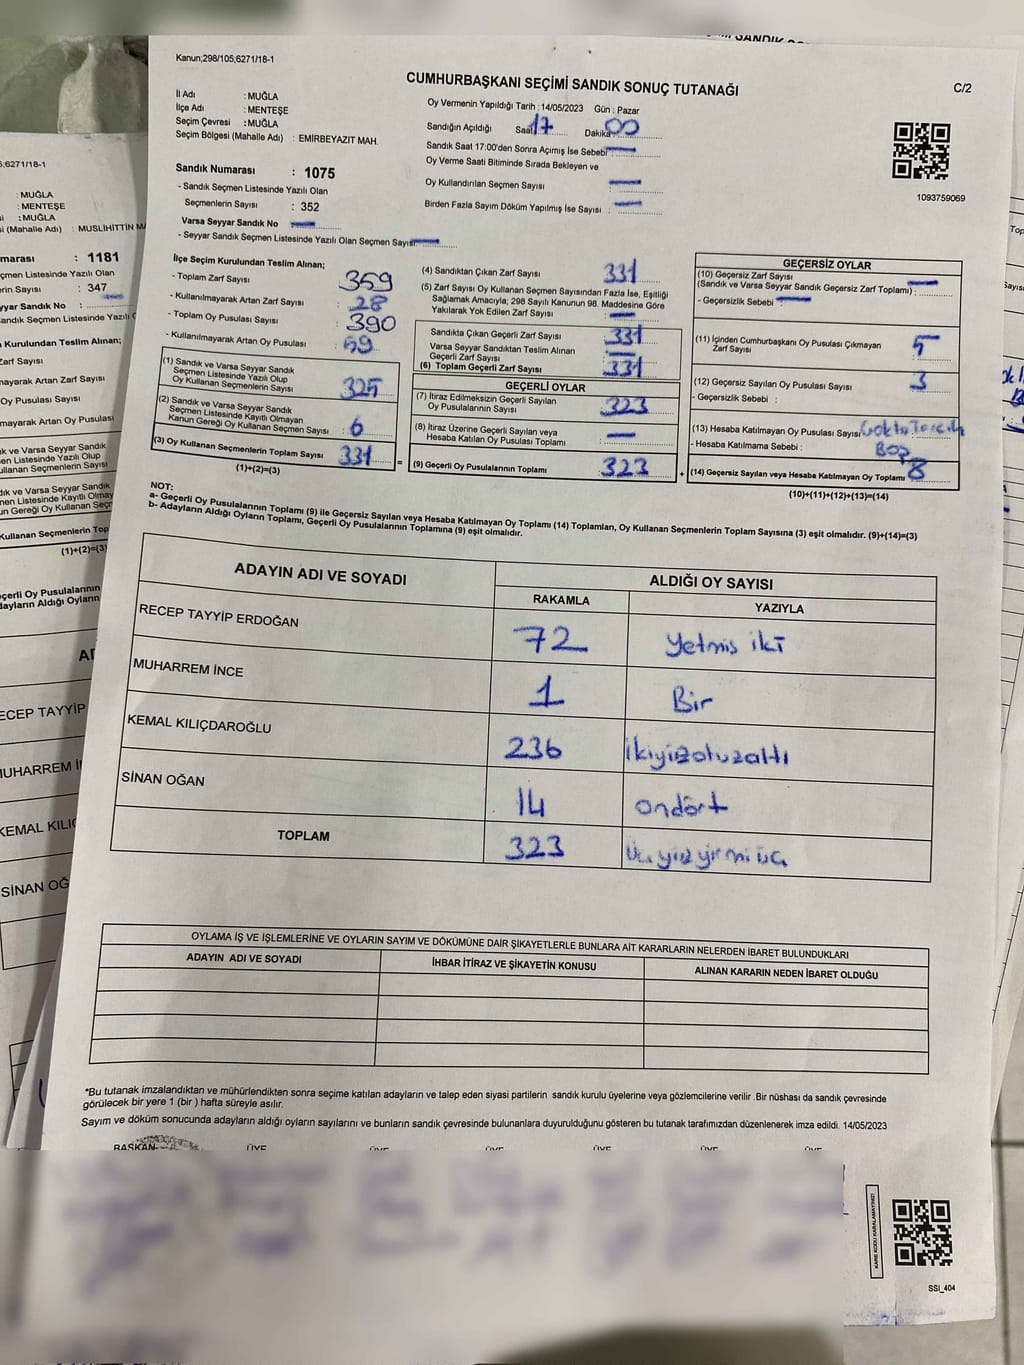 SANDIK
Kanun;298/105;6271/18-1
CUMHURBAŞKANI SEÇİMİ SANDIK SONUÇ TUTANAĞI
C/2
İl Adı : MUĞLA
İlçe Adı : MENTEŞE
Seçim Çevresi : MUĞLA
Seçim Bölgesi (Mahalle Adı) : EMİRBEYAZIT MAH.
Oy Vermenin Yapıldığı Tarih : 14/05/2023 Gün : Pazar
Sandığın Açıldığı Saat 17 Dakika 00
Sandık Saat 17:00'den Sonra Açımış İse Sebebi
Oy Verme Saati Bitiminde Sırada Bekleyen ve
Oy Kullandırılan Seçmen Sayısı
Birden Fazla Sayım Döküm Yapılmış İse Sayısı :
1093759069
Sandık Numarası : 1075
- Sandık Seçmen Listesinde Yazılı Olan
Seçmenlerin Sayısı : 352
Varsa Seyyar Sandık No
- Seyyar Sandık Seçmen Listesinde Yazılı Olan Seçmen Sayısı:
İlçe Seçim Kurulundan Teslim Alınan;
- Toplam Zarf Sayısı 359
- Kullanılmayarak Artan Zarf Sayısı : 28
- Toplam Oy Pusulası Sayısı : 390
- Kullanılmayarak Artan Oy Pusulası : 59
(1) Sandık ve Varsa Seyyar Sandık
Seçmen Listesinde Yazılı Olup
Oy Kullanan Seçmenlerin Sayısı : 325
(2) Sandık ve Varsa Seyyar Sandık
Seçmen Listesinde Kayıtlı Olmayan
Kanun Gereği Oy Kullanan Seçmen Sayısı : 6
(3) Oy Kullanan Seçmenlerin Toplam Sayısı 331 =
(1)+(2)=(3)
(4) Sandıktan Çıkan Zarf Sayısı 331
(5) Zarf Sayısı Oy Kullanan Seçmen Sayısından Fazla İse, Eşitliği
Sağlamak Amacıyla; 298 Sayılı Kanunun 98. Maddesine Göre
Yakılarak Yok Edilen Zarf Sayısı :
Sandıkta Çıkan Geçerli Zarf Sayısı 331
Varsa Seyyar Sandıktan Teslim Alınan
Geçerli Zarf Sayısı :
(6) Toplam Geçerli Zarf Sayısı : 331
GEÇERLİ OYLAR
(7) İtiraz Edilmeksizin Geçerli Sayılan
Oy Pusulalarının Sayısı : 323
(8) İtiraz Üzerine Geçerli Sayılan veya
Hesaba Katılan Oy Pusulası Toplamı :
(9) Geçerli Oy Pusulalarının Toplamı : 323 +
GEÇERSİZ OYLAR
(10) Geçersiz Zarf Sayısı
(Sandık ve Varsa Seyyar Sandık Geçersiz Zarf Toplamı) :
- Geçersizlik Sebebi :
(11) İçinden Cumhurbaşkanı Oy Pusulası Çıkmayan
Zarf Sayısı : 5
(12) Geçersiz Sayılan Oy Pusulası Sayısı : 3
- Geçersizlik Sebebi :
(13) Hesaba Katılmayan Oy Pusulası Sayısı
- Hesaba Katılmama Sebebi : Boş
(14) Geçersiz Sayılan veya Hesaba Katılmayan Oy Toplamı 8
(10)+(11)+(12)+(13)=(14)
NOT:
a- Geçerli Oy Pusulalarının Toplamı (9) ile Geçersiz Sayılan veya Hesaba Katılmayan Oy Toplamı (14) Toplamları, Oy Kullanan Seçmenlerin Toplam Sayısına (3) eşit olmalıdır. (9)+(14)=(3)
b- Adayların Aldığı Oyların Toplamı, Geçerli Oy Pusulalarının Toplamına (9) eşit olmalıdır.
ADAYIN ADI VE SOYADI ALDIĞI OY SAYISI
RAKAMLA YAZIYLA
RECEP TAYYİP ERDOĞAN 72 Yetmis iki
MUHARREM İNCE 1 Bir
KEMAL KILIÇDAROĞLU 236 ikiyüzotuzaltı
SİNAN OĞAN 14 ondört
TOPLAM 323 Üçyüzyirmiüç
OYLAMA İŞ VE İŞLEMLERİNE VE OYLARIN SAYIM VE DÖKÜMÜNE DAİR ŞİKAYETLERLE BUNLARA AİT KARARLARIN NELERDEN İBARET BULUNDUKLARI
ADAYIN ADI VE SOYADI İHBAR İTİRAZ VE ŞİKAYETİN KONUSU ALINAN KARARIN NEDEN İBARET OLDUĞU
*Bu tutanak imzalandıktan ve mühürlendikten sonra seçime katılan adayların ve talep eden siyasi partilerin sandık kurulu üyelerine veya gözlemcilerine verilir. Bir nüshası da sandık çevresinde
görülecek bir yere 1 (bir) hafta süreyle asılır.
Sayım ve döküm sonucunda adayların aldığı oyların sayılarını ve bunların sandık çevresinde bulunanlara duyurulduğunu gösteren bu tutanak tarafımızdan düzenlenerek imza edildi. 14/05/2023
BAŞKAN ÜYE ÜYE ÜYE ÜYE ÜYE ÜYE
KARE KODU KARALAMAYINIZ!
SSI_404
;6271/18-1
: MUĞLA
: MENTEŞE
: MUĞLA
(Mahalle Adı) : MUSLİHİTTİN
: 1181
: 347